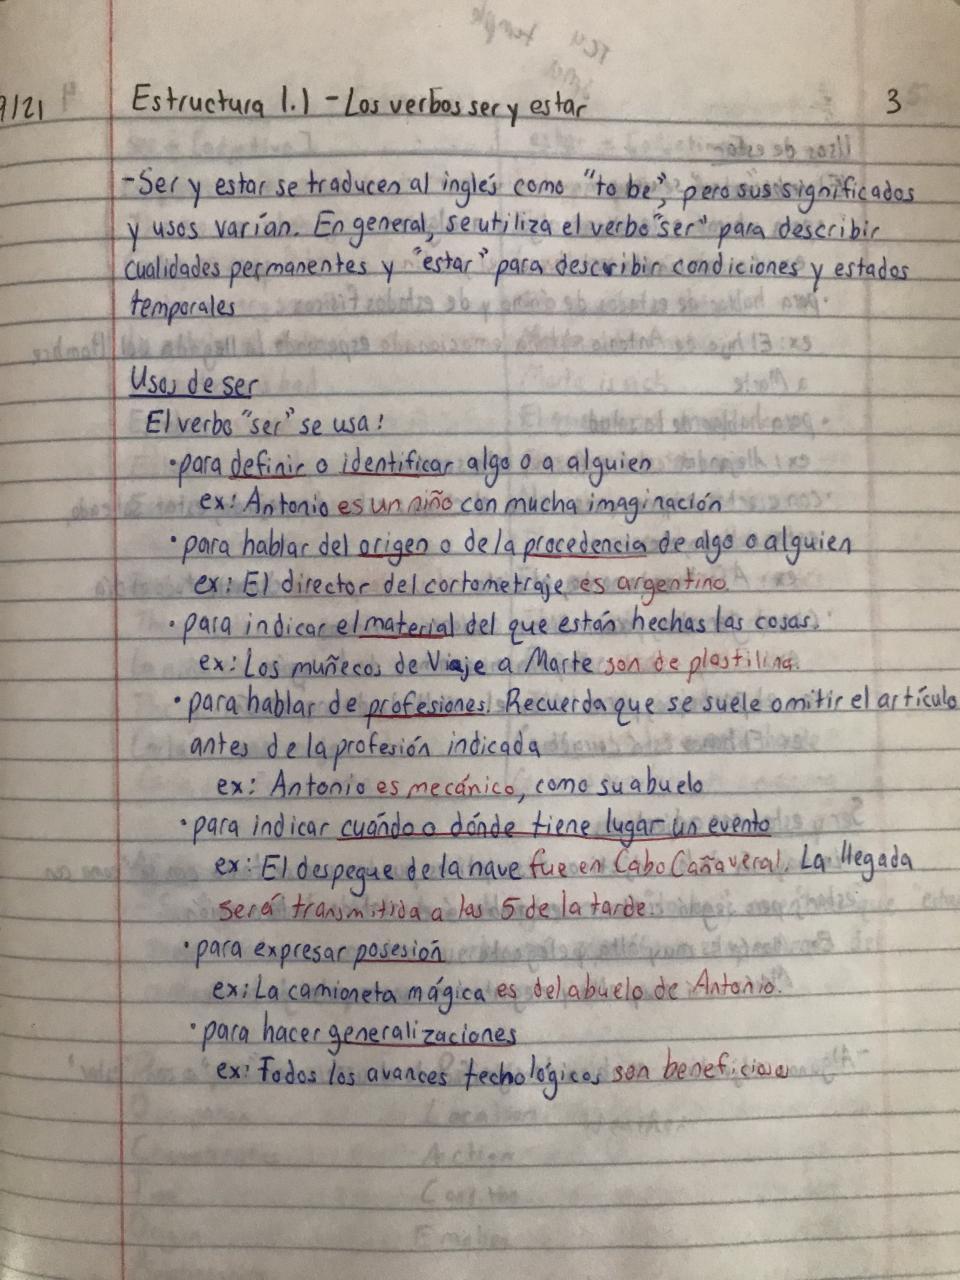 9/21 Estructura 1.1 - Los verbos ser y estar 3
- Ser y estar se traducen al inglés como "to be", pero sus significados
y usos varían. En general, se utiliza el verbo "ser" para describir
cualidades permanentes y "estar" para describir condiciones y estados
temporales
Usos de ser
El verbo "ser" se usa:
• para definir o identificar algo o a alguien
ex: Antonio es un niño con mucha imaginación
• para hablar del origen o de la procedencia de algo o alguien
ex: El director del cortometraje es argentino.
• para indicar el material del que están hechas las cosas.
ex: Los muñecos de Viaje a Marte son de plastilina.
• para hablar de profesiones. Recuerda que se suele omitir el artículo
antes de la profesión indicada
ex: Antonio es mecánico, como su abuelo
• para indicar cuándo o dónde tiene lugar un evento
ex: El despegue de la nave fue en Cabo Cañaveral. La llegada
será transmitida a las 5 de la tarde.
• para expresar posesión
ex: La camioneta mágica es del abuelo de Antonio.
• para hacer generalizaciones
ex: Todos los avances technológicos son beneficiosos